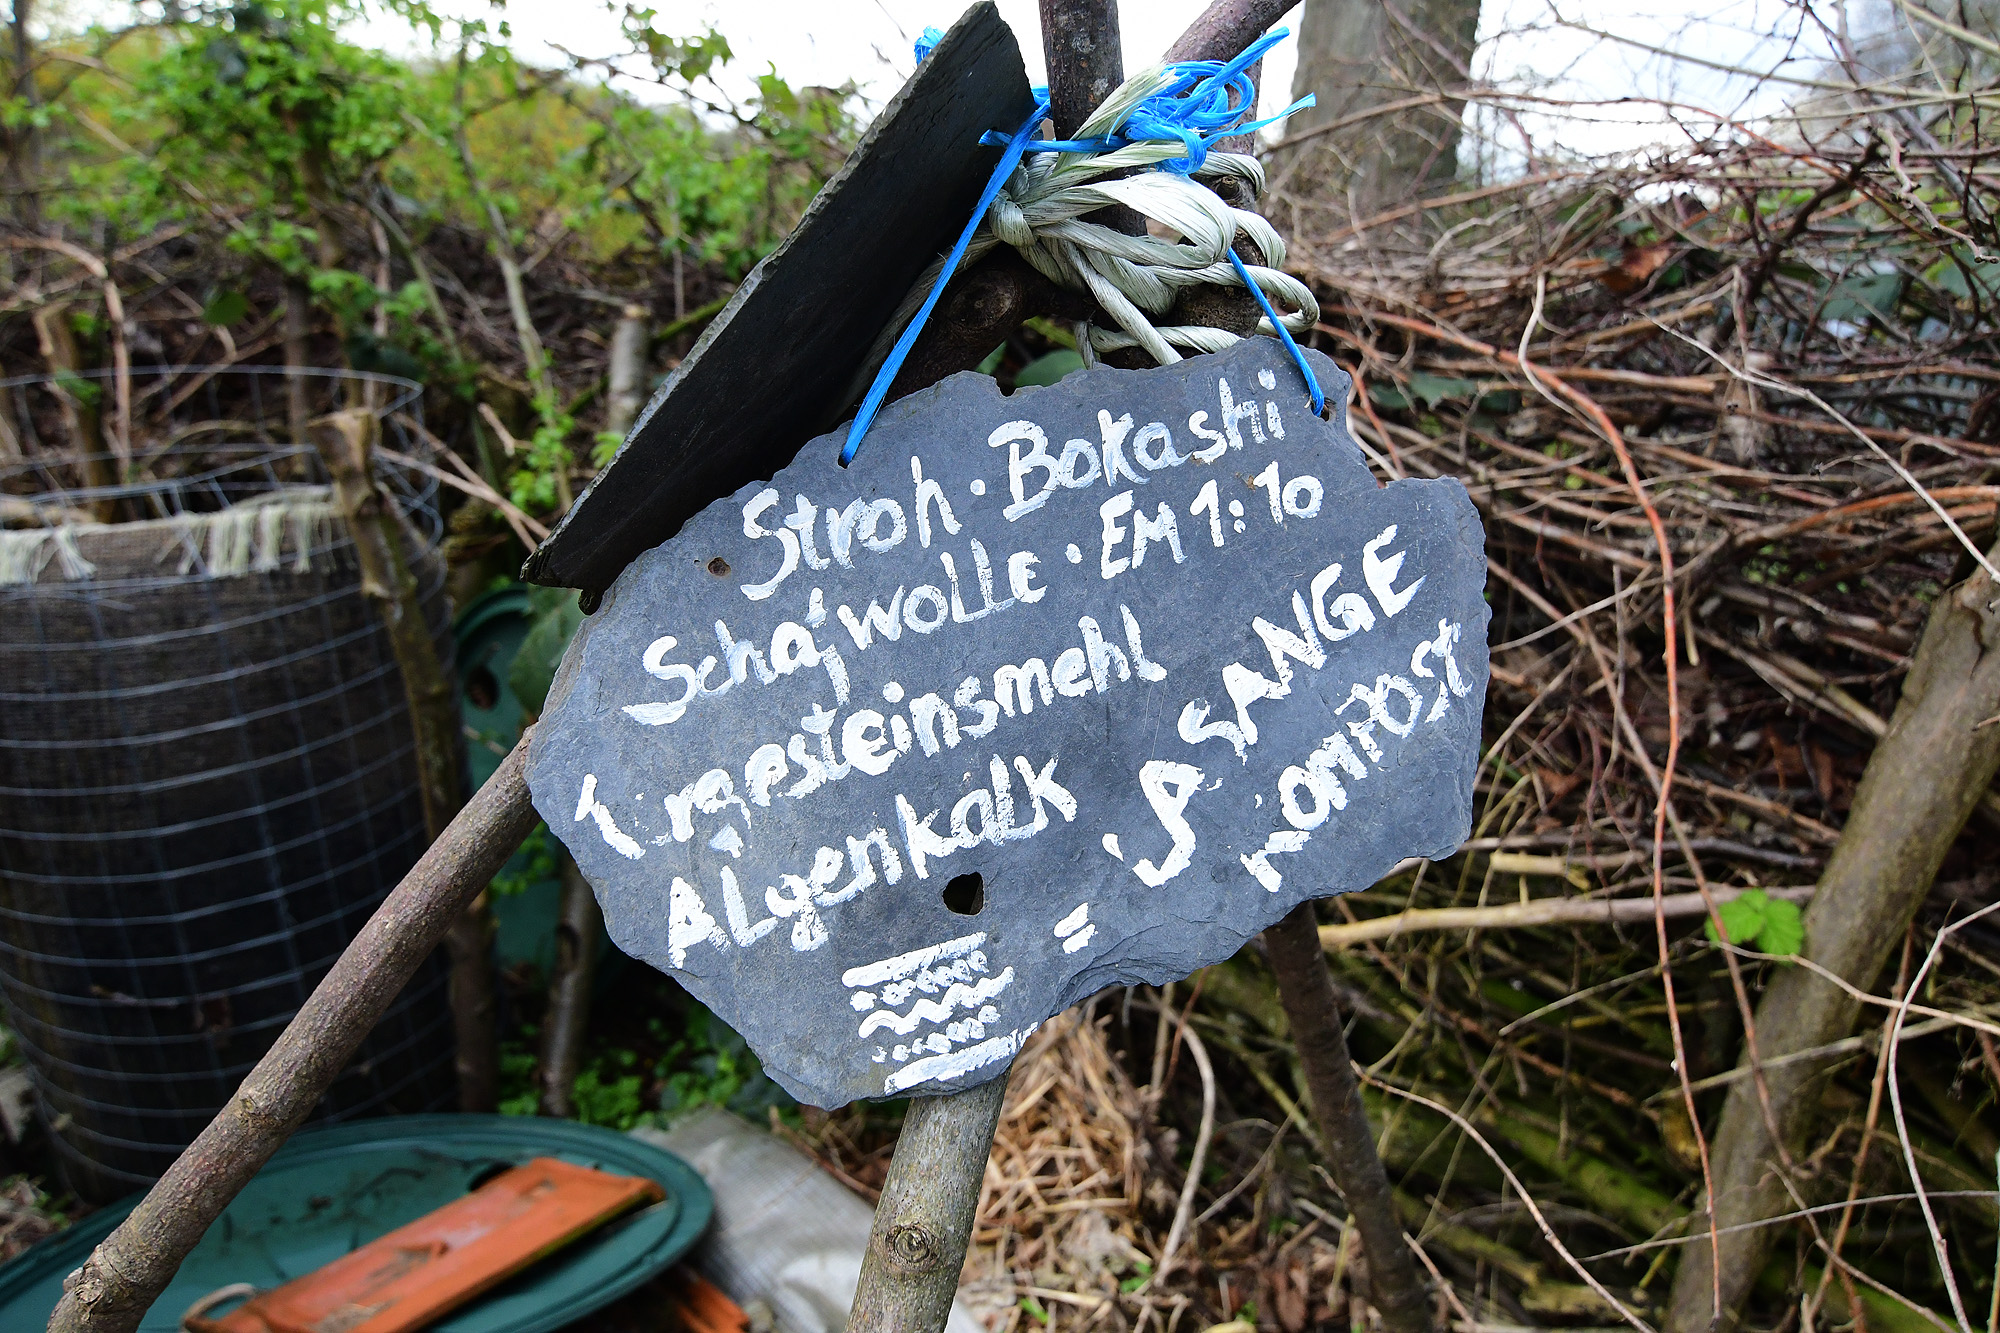 Stroh · Bokashi
Schafwolle · EM 1:10
Urgesteinsmehl
Algenkalk
=
JA SANGE
KOMPOST